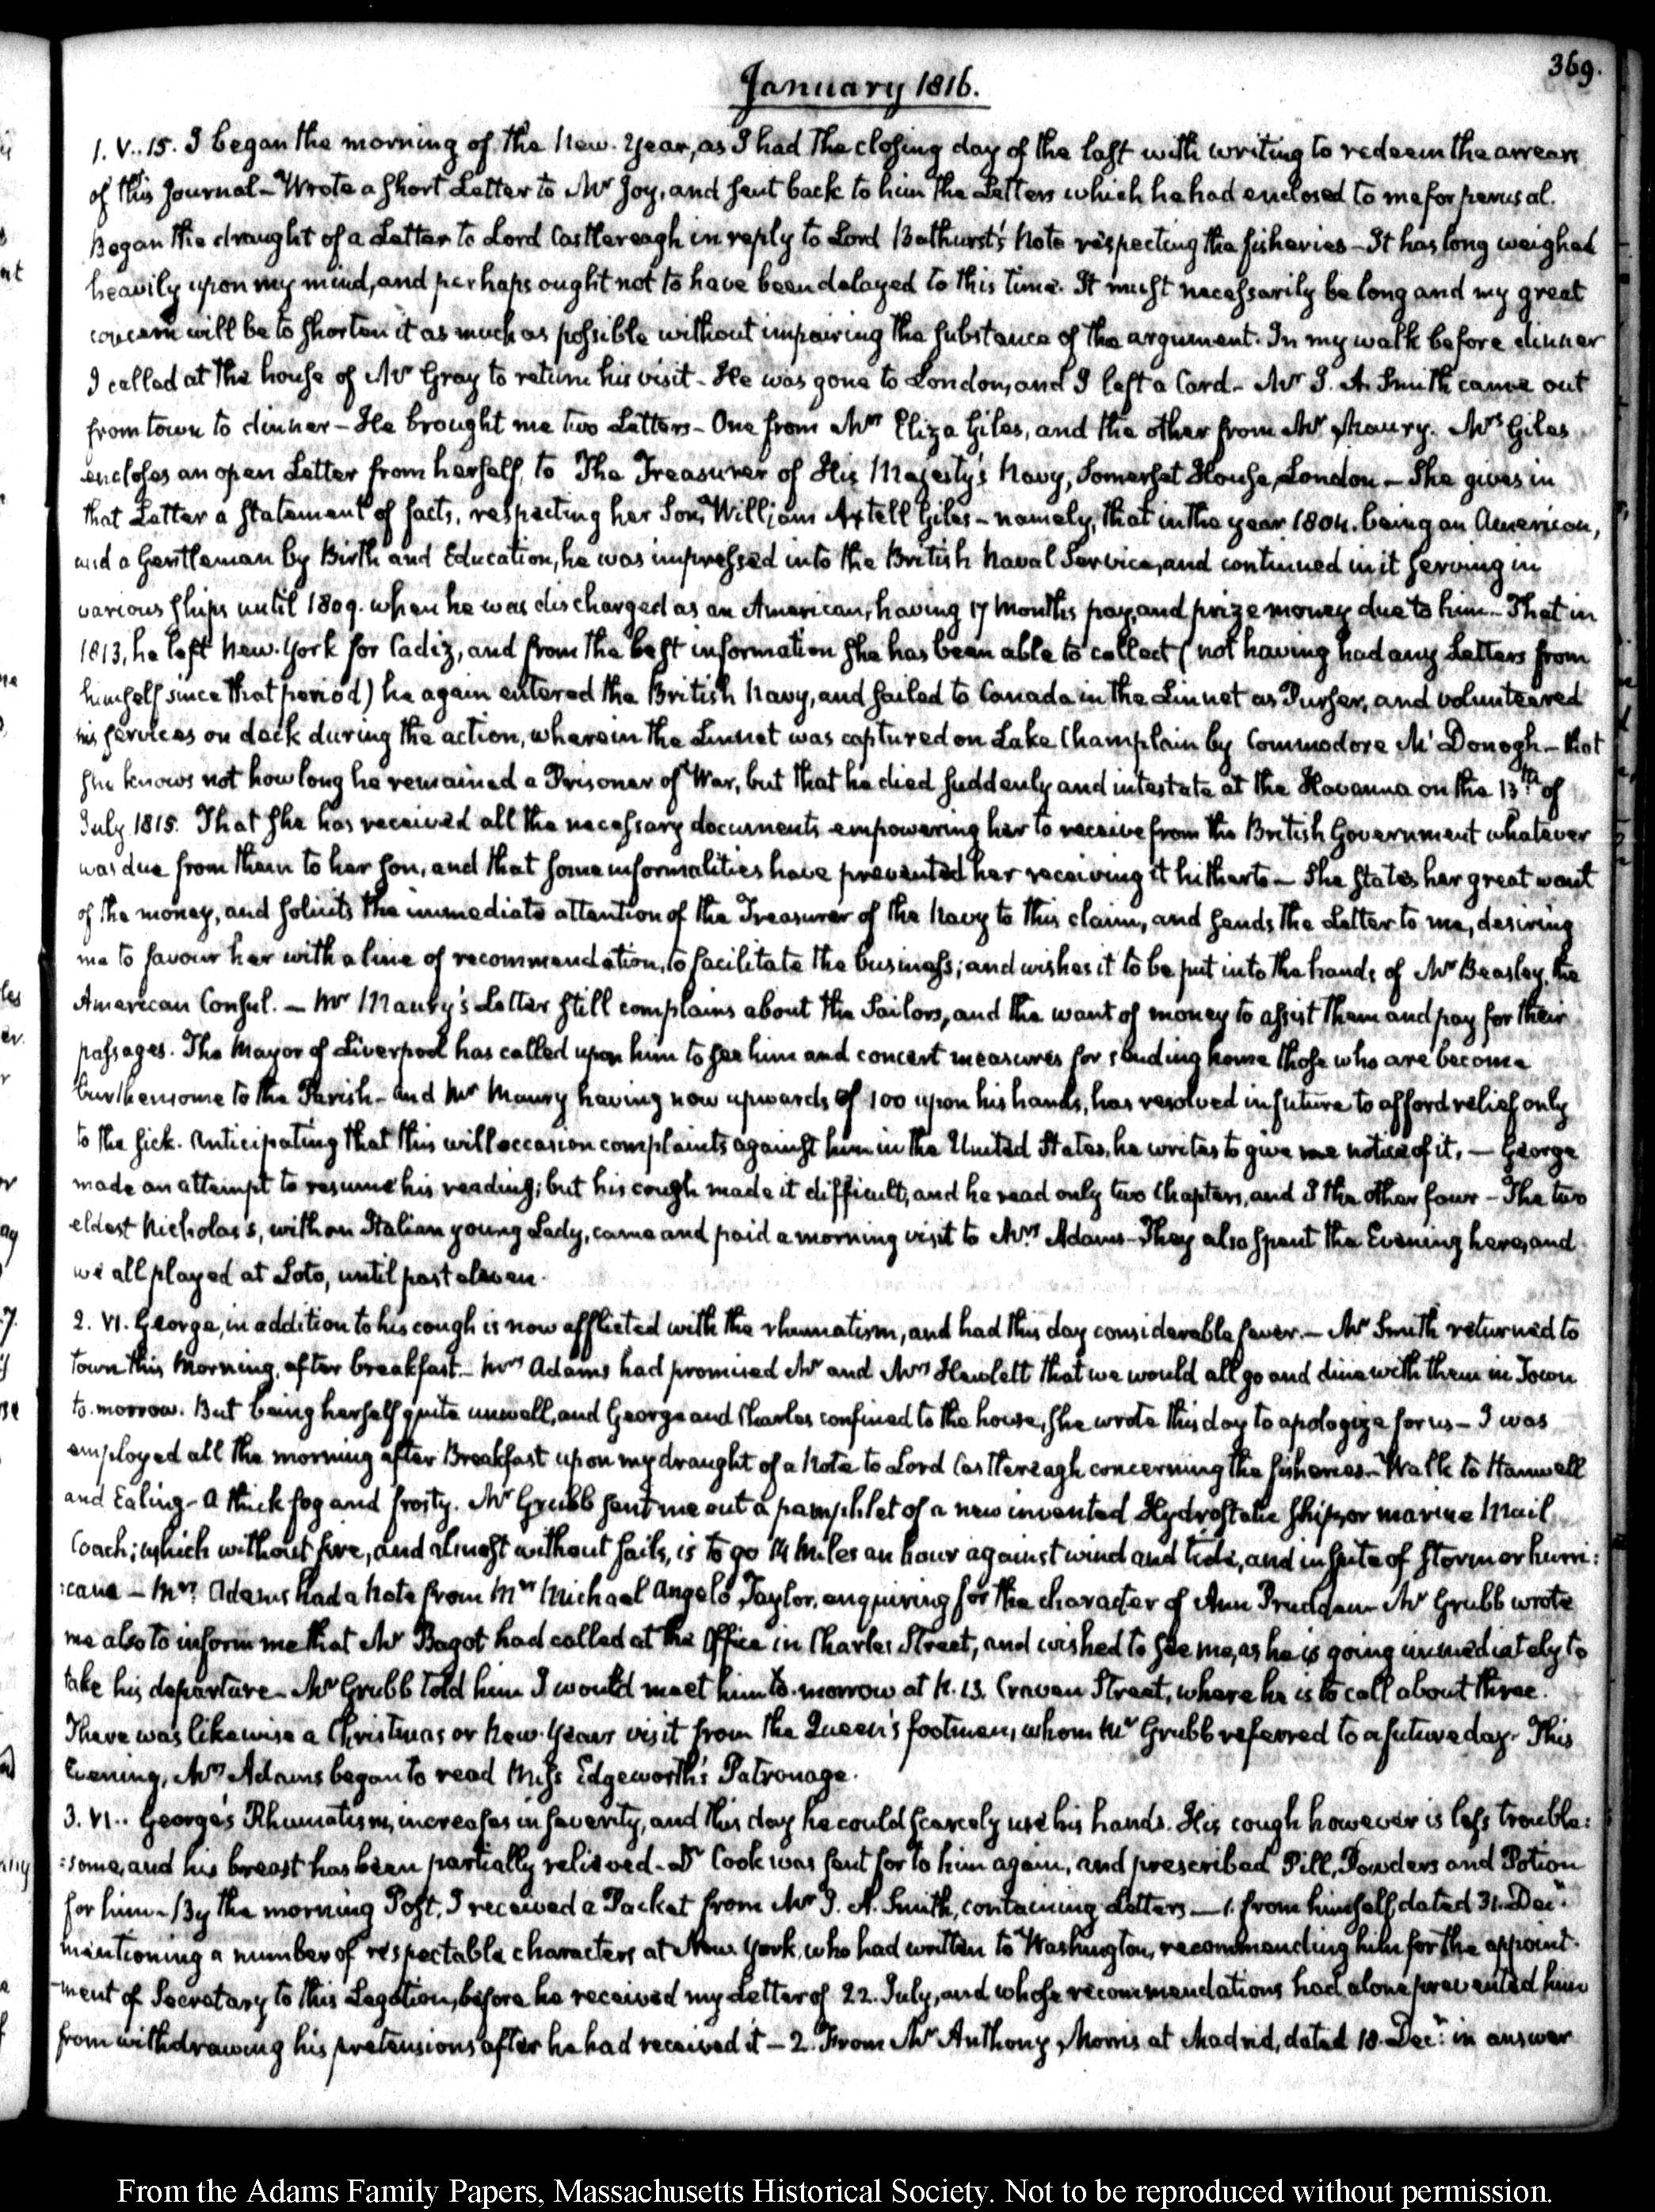 369.
January 1816.
1. V..15. I began the morning of the New-Year, as I had the closing day of the last with writing to redeem the arrears
of this Journal - Wrote a short Letter to Mr Joy, and sent back to him the Letters which he had enclosed to me for perusal.
Began the draught of a Letter to Lord Castlereagh in reply to Lord Bathurst's Note respecting the fisheries - It has long weighed
heavily upon my mind, and perhaps ought not to have been delayed to this time. It must necessarily be long and my great
concern will be to shorten it as much as possible without impairing the substance of the argument. In my walk before dinner
I called at the house of Mr Gray to return his visit - He was gone to London, and I left a Card - Mr J. A. Smith came out
from town to dinner - He brought me two Letters - One from Mrs Eliza Giles, and the other from Mr Maury. Mrs Giles
encloses an open Letter from herself, to The Treasurer of His Majesty's Navy, Somerset House, London - She gives in
that Letter a statement of facts, respecting her Son, William Axtell Giles - namely, that in the year 1804. being an American,
and a Gentleman by Birth and Education, he was impressed into the British Naval Service, and continued in it serving in
various ships until 1809. when he was discharged as an American, having 17 Months pay, and prize money due to him - That in
1813, he left New-York for Cadiz, and from the best information she has been able to collect (not having had any Letters from
himself since that period) he again entered the British Navy, and sailed to Canada in the Linnet as Purser, and volunteered
his services on deck during the action, wherein the Linnet was captured on Lake Champlain by Commodore McDonogh - that
she knows not how long he remained a Prisoner of War, but that he died suddenly and intestate at the Havanna on the 13th of
July 1815. That she has received all the necessary documents empowering her to receive from the British Government whatever
was due from them to her son, and that some informalities have prevented her receiving it hitherto - She states her great want
of the money, and solicits the immediate attention of the Treasurer of the Navy to this claim, and sends the Letter to me, desiring
me to favour her with a line of recommendation, to facilitate the business; and wishes it to be put into the hands of Mr Beasley, the
American Consul. - Mr Maury's Letter still complains about the Sailors, and the want of money to assist them and pay for their
passages. The Mayor of Liverpool has called upon him to see him and concert measures for sending home those who are become
burthensome to the Parish - and Mr Maury having now upwards of 100 upon his hands, has resolved in future to afford relief only
to the sick. Anticipating that this will occasion complaints against him in the United States, he writes to give me notice of it. - George
made an attempt to resume his reading; but his cough made it difficult, and he read only two Chapters, and I the other four - The two
eldest Nicholas's, with an Italian young Lady, came and paid a morning visit to Mrs Adams - They also spent the Evening here, and
we all played at Loto, until past eleven.
2. VI. George, in addition to his cough is now afflicted with the rhumatism, and had this day considerable fever. - Mr Smith returned to
town this Morning, after breakfast - Mrs Adams had promised Mr and Mrs Hewlett that we would all go and dine with them in Town
to-morrow. But being herself quite unwell, and George and Charles confined to the house, she wrote this day to apologize for us - I was
employed all the morning after Breakfast upon my draught of a Note to Lord Castlereagh concerning the fisheries - Walk to Hanwell
and Ealing - A thick fog and frosty. Mr Grubb sent me out a pamphlet of a new invented Hydrostatic Ship, or marine Mail
Coach; which without fire, and almost without sails, is to go 14 Miles an hour against wind and tide, and in spite of storm or hurri:
:cane - Mrs Adams had a Note from Mrs Michael Angelo Taylor, enquiring for the character of Ann Prudden - Mr Grubb wrote
me also to inform me that Mr Bagot had called at the Office in Charles Street, and wished to see me, as he is going immediately to
take his departure - Mr Grubb told him I would meet him to-morrow at N. 13. Craven Street, where he is to call about three.
There was likewise a Christmas or New-Years visit from the Queen's footmen, whom Mr Grubb referred to a future day. This
Evening, Mrs Adams began to read Miss Edgeworth's Patronage.
3. VI.. George's Rhumatism, increases in severity, and this day he could scarcely use his hands. His cough however is less trouble:
:some, and his breast has been partially relieved - Dr Cook was sent for to him again, and prescribed Pill, Powders and Potion
for him - By the morning Post, I received a Packet from Mr J. A. Smith, containing Letters - 1. from himself, dated 31. Decr
mentioning a number of respectable characters at New-York, who had written to Washington, recommending him for the appoint-
-ment of Secretary to this Legation, before he received my Letter of 22. July, and whose recommendations had alone prevented him
from withdrawing his pretensions after he had received it - 2. From Mr Anthony Morris at Madrid, dated 18. Decr in answer
From the Adams Family Papers, Massachusetts Historical Society. Not to be reproduced without permission.